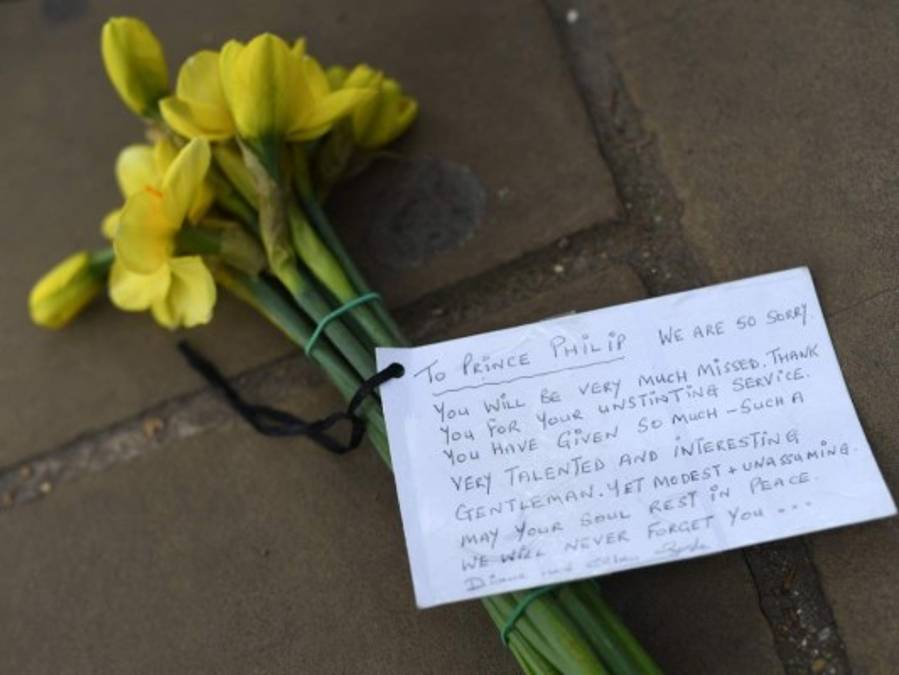 To PRiNCE PHiLiP WE ARE SO SORRY.
YOU WiLL BE VERY MUCH MiSSED. THANK
YOU FOR YOUR UNSTiNTiNG SERViCE.
YOU HAVE GiVEN SO MUCH – SUCH A
VERY TALENTED AND iNTERESTiNG
GENTLEMAN. YET MODEST + UNASSUMiNG.
MAY YOUR SOUL REST iN PEACE.
WE WiLL NEVER FORGET YOU ...